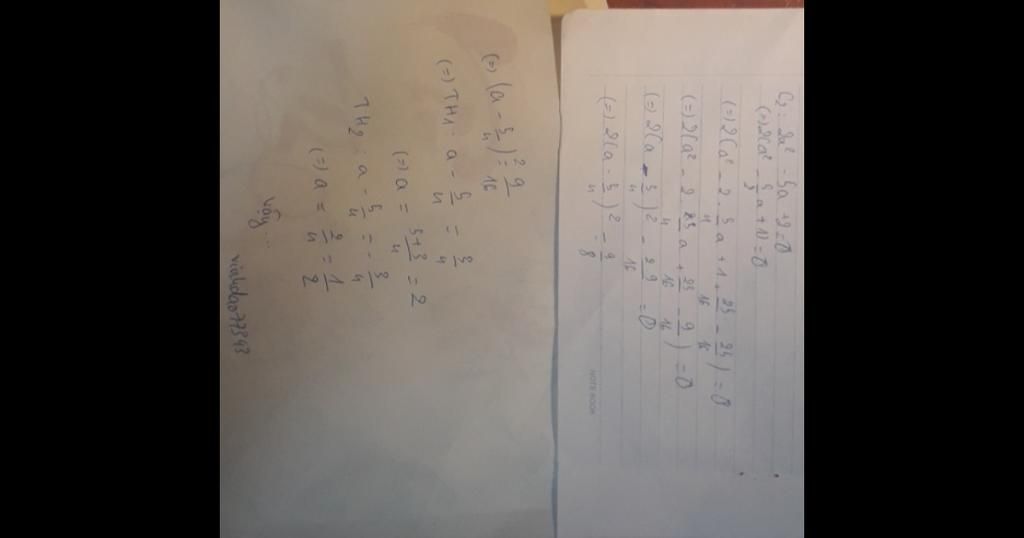 C2: 2a² - 5a + 2 = 0
(=) 2(a² - 5/2 a + 1) = 0
(=) 2(a² - 2 . 5/4 a + 1 + 25/16 - 25/16) = 0
(=) 2(a² - 2 . 5/4 a + 25/16 - 9/16) = 0
(=) 2(a - 5/4)² - 2 9/16 = 0
(=) 2(a - 5/4)² = 9/8
NOTE BOOK
(=) (a - 5/4)² = 9/16
(=) TH1 : a - 5/4 = 3/4
(=) a = 5+3/4 = 2
TH2 : a - 5/4 = - 3/4
(=) a = 2/4 = 1/2
Vậy ...